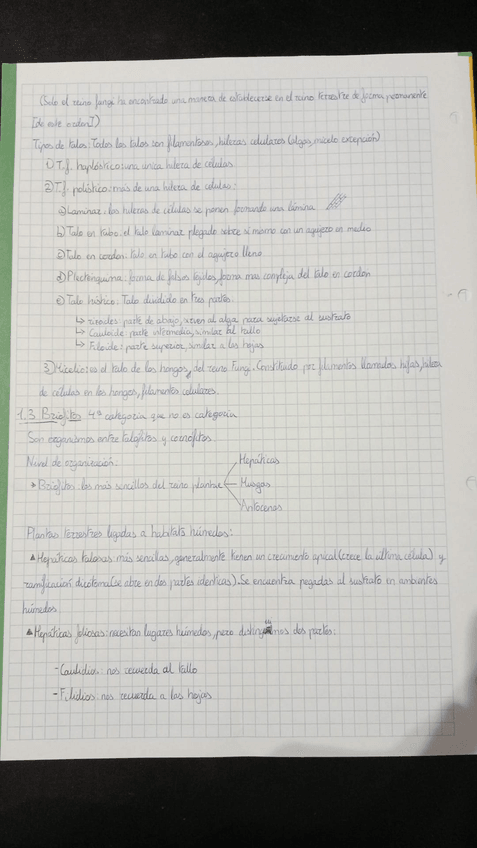 (Solo el reino fungi ha encontrado una manera de establecerse en el reino terrestre de forma permanente
[de este orden])
Tipos de talos: Todos los talos son filamentosos, hileras celulares (algas, micelo excepción)
1) T.f. haplóstico: una única hilera de células
2) T.f. polístico: más de una hilera de células:
a) Laminar: las hileras de células se ponen formando una lámina
b) Talo en tubo: el talo laminar plegado sobre si mismo con un agujero en medio
c) Talo en cordon: talo en tubo con el agujero lleno
d) Plectenquima: forma de falsos tejidos, forma mas compleja del talo en cordon
e) Talo hístico: Talo dividido en tres partes:
↳ rizoides: parte de abajo, sirven al alga para sujetarse al sustrato
↳ Cauloide: parte intermedia, similar al tallo
↳ Filoide: parte superior, similar a las hojas
3) Micelio: es el talo de los hongos, del reino Fungi. Constituido por filamentos llamados hifas, hilera
de células en los hongos, filamentos celulares.
1.3. Briofitos 4ª categoria que no es categoria
Son organismos entre talofitos y cormofitos.
Nivel de organización:
→ Briofitos: los más sencillos del reino plantae
Hepáticas
Musgos
Antoceros
Plantas terrestres ligadas a habitats húmedos:
▲Hepáticas talosas: más sencillas, generalmente tienen un crecimiento apical (crece la última célula) y
ramificación dicótoma (se abre en dos partes identicas). Se encuentra pegadas al sustrato en ambientes
húmedos.
▲Hepáticas foliosas: necesitan lugares húmedos, pero distinguimos dos partes:
- Caulidios: nos recuerda al tallo
- Filidios: nos recuerda a las hojas